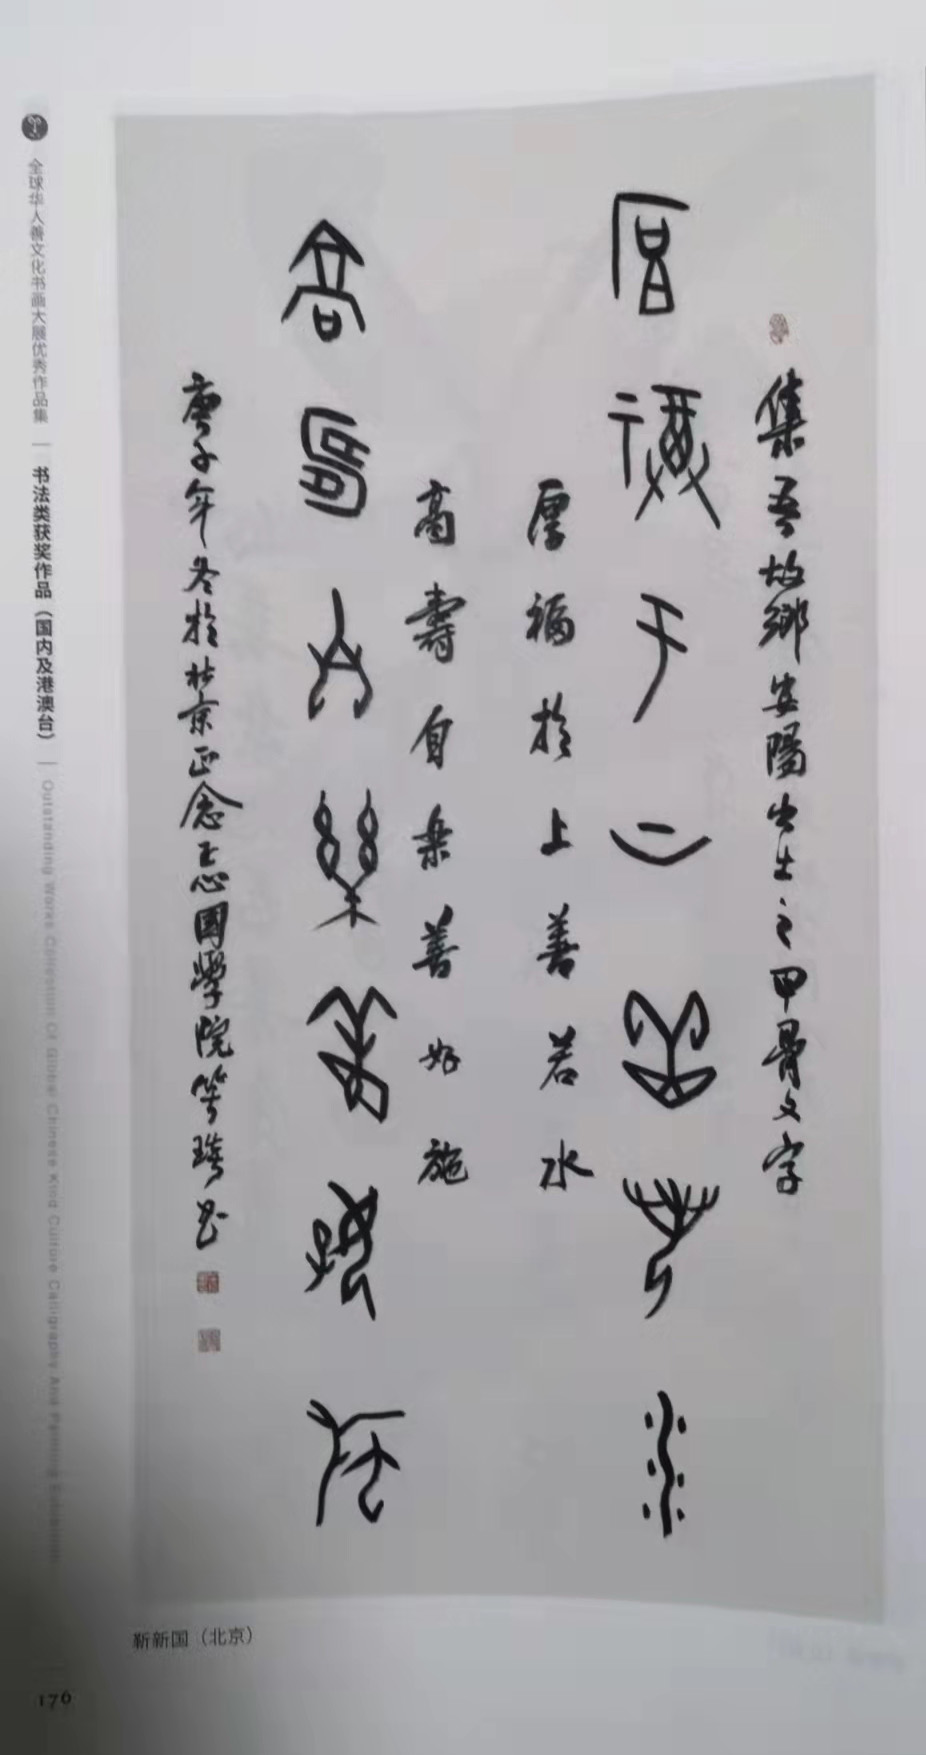 集吾故鄉安陽出土之甲骨文字
厚福于上善若水
厚福於上善若水
高壽自樂善好施
高壽自樂善好施
庚子年冬於北京正念正志國學院
靳新国（北京）
全球华人善文化书画大展优秀作品集｜书法类获奖作品（国内及港澳台）｜Outstanding Works Collection Of Global Chinese Kind Culture Calligraphy And Painting Exhibition
176